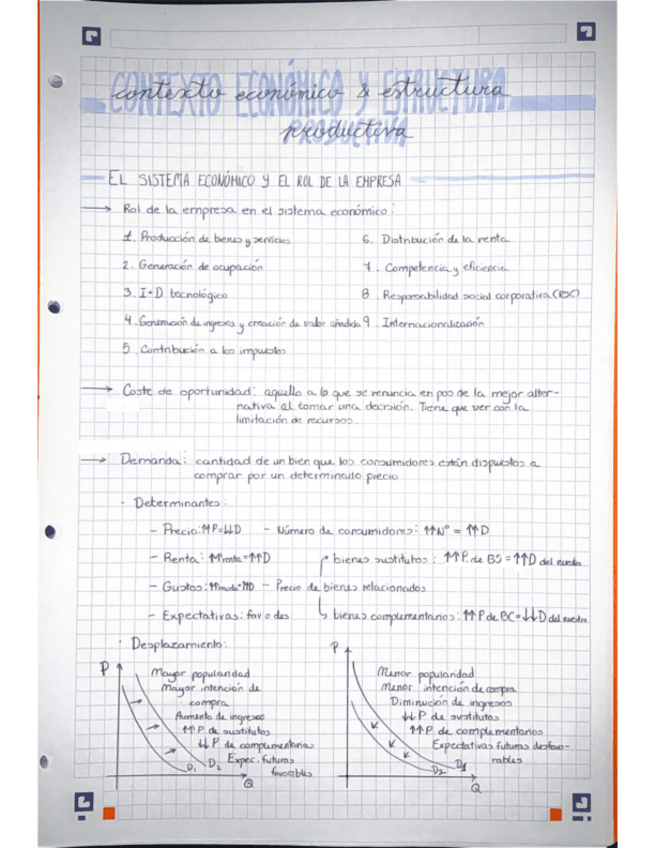 contexto económico & estructura
productiva
CONTEXTO ECONÓMICO Y ESTRUCTURA
PRODUCTIVA
EL SISTEMA ECONÓMICO Y EL ROL DE LA EMPRESA
→ Rol de la empresa en el sistema económico:
1. Producción de bienes y servicios
2. Generación de ocupación
3. I+D tecnológico
4. Generación de ingresos y creación de valor añadido
5. Contribución a los impuestos
6. Distribución de la renta
7. Competencia y eficiencia
8. Responsabilidad social corporativa (RSC)
9. Internacionalización
→ Coste de oportunidad: aquello a lo que se renuncia en pos de la mejor alter-
nativa al tomar una decisión. Tiene que ver con la
limitación de recursos.
→ Demanda: cantidad de un bien que los consumidores están dispuestos a
comprar por un determinado precio
· Determinantes:
- Precio: ↑↑P=↓↓D - Número de consumidores: ↑↑Nº = ↑↑D
- Renta: ↑↑renta=↑↑D bienes sustitutos: ↑↑P. de BS = ↑↑D del nuestro
- Gustos: ↑↑moda=↑↑D - Precio de bienes relacionados
- Expectativas: fav o des bienes complementarios: ↑↑P de BC=↓↓D del nuestro
· Desplazamiento:
P
Mayor popularidad
Mayor intención de
compra
Aumento de ingresos
↑↑ P de sustitutos
↓↓ P de complementarios
Expec. futuras
favorables
D1 D2
Q
P
Menor popularidad
Menor intención de compra
Diminución de ingresos
↓↓ P de sustitutos
↑↑ P de complementarios
Expectativas futuras desfavo-
rables
D2 D1
Q